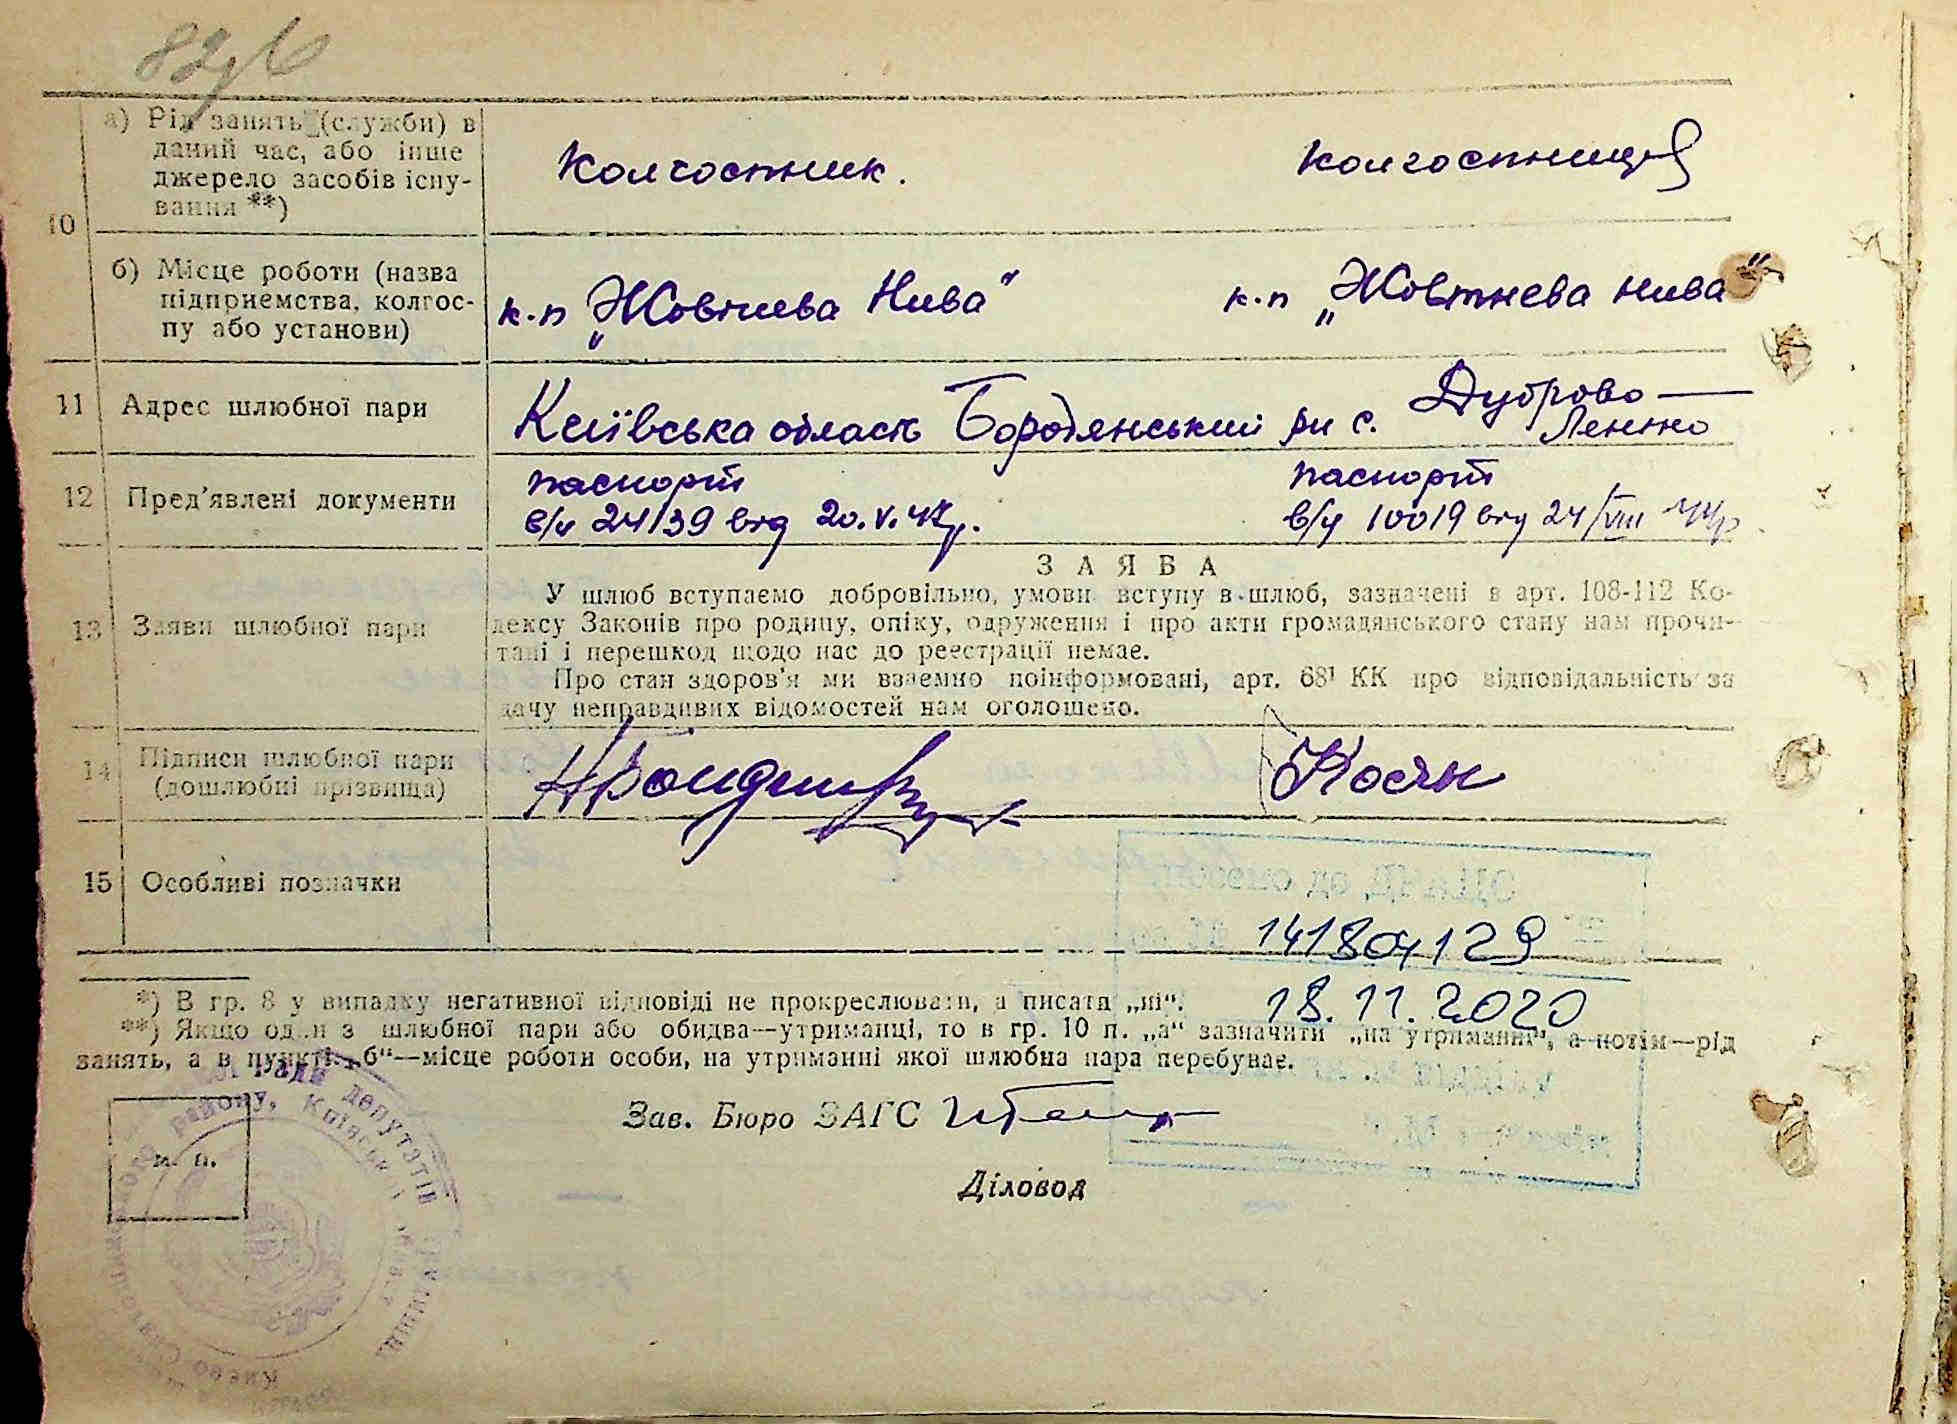 10
а) Рід занять (служби) в
даний час, або інше
джерело засобів існу-
вання **)
Колгоспник.
Колгоспниця
б) Місце роботи (назва
підприємства, колгос-
пу або установи)
к-п „Жовтнева Нива“
к-п „Жовтнева Нива“
11
Адрес шлюбної пари
Київська область Бородянський рн с. Дуброво —
Ленино
12
Пред'явлені документи
паспорт
в/ч 24139 від 20.V.47р.
паспорт
в/ч 10019 від 24/VIII
13
Заяви шлюбної пари
ЗАЯВА
У шлюб вступаємо добровільно, умови вступу в шлюб, зазначені в арт. 108-112 Ко-
дексу Законів про родину, опіку, одруження і про акти громадянського стану нам прочи-
тані і перешкод щодо нас до реєстрації немає.
Про стан здоров'я ми взаємно поінформовані, арт. 68¹ КК про відповідальність за
дачу неправдивих відомостей нам оголошено.
14
Підписи шлюбної пари
(дошлюбні прізвища)
Косян
15
Особливі позначки
14180
18.11.2020
*) В гр. 8 у випадку негативної відповіді не прокреслювати, а писати „ні“.
**) Якщо один з шлюбної пари або обидва—утриманці, то в гр. 10 п. „а“ зазначити „на утриманні“, а потім—рід
занять, а в пункті „б“—місце роботи особи, на утриманні якої шлюбна пара перебуває.
Зав. Бюро ЗАГС
Діловод
м. п.
Ради депутатів трудящих
району, Київської області
Києво-Святошинського